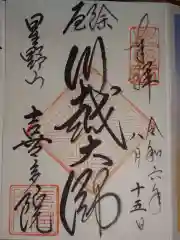 奉拝
令和六年
八月
十五日
厄除
川越大師
星野山
喜多院